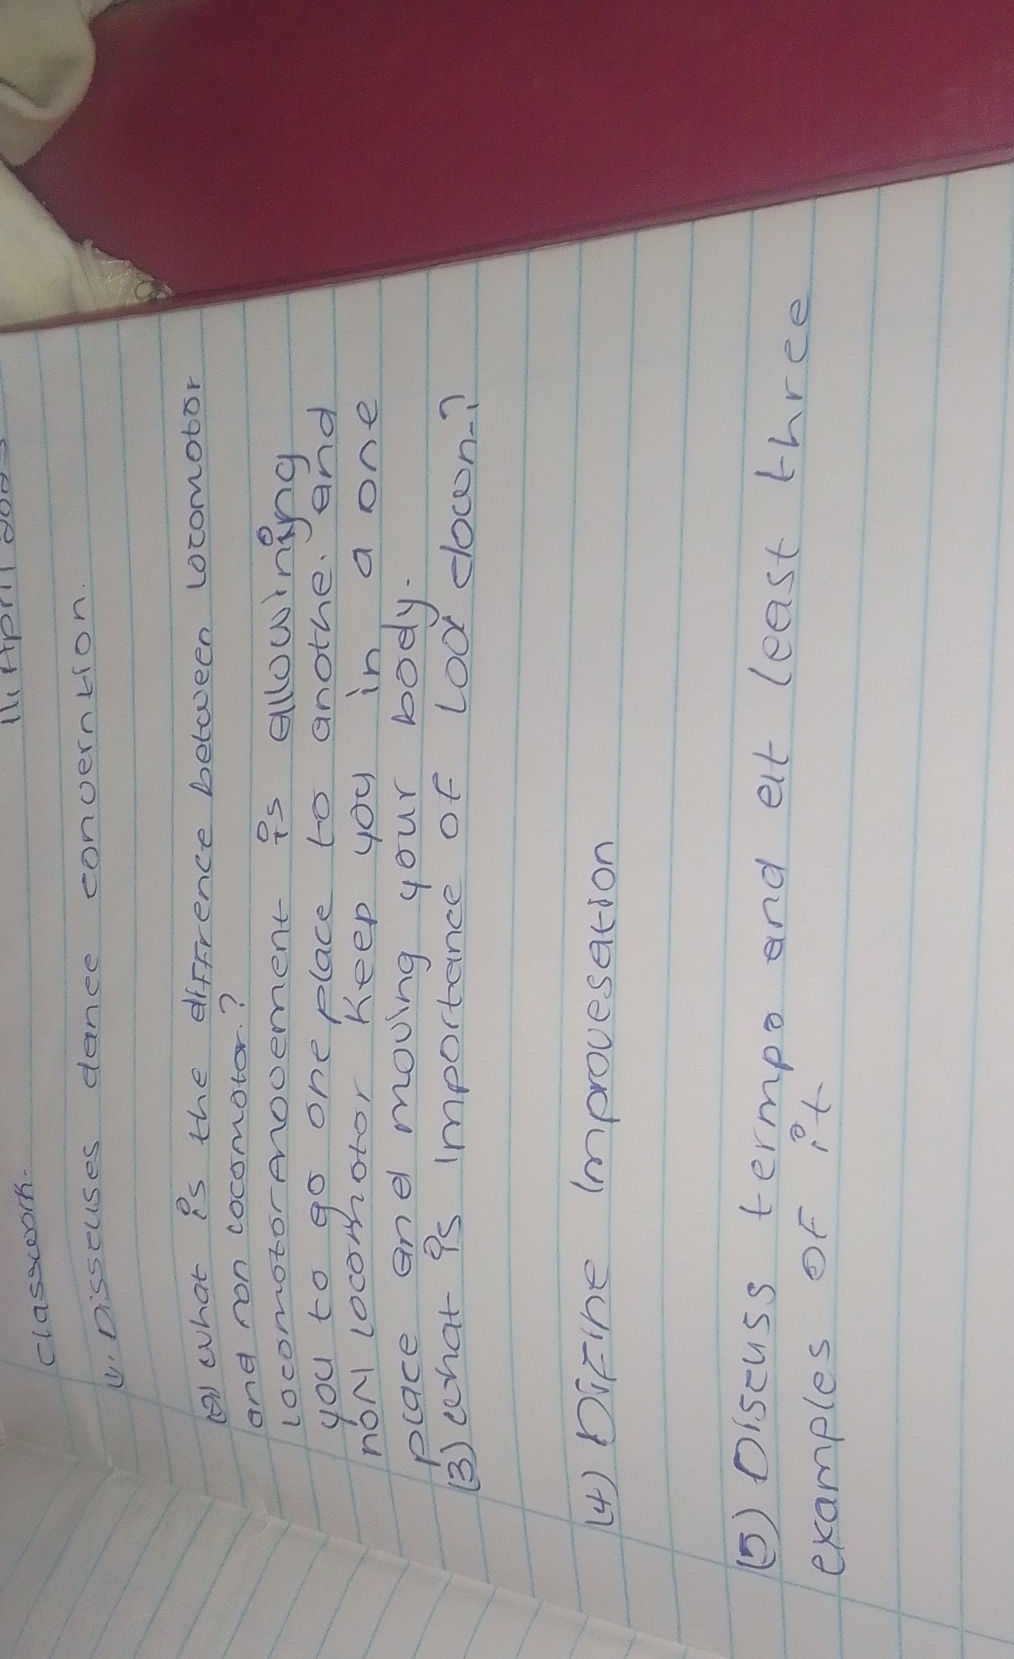 11 April
classwork.
1. Disscuses dance converntion.
(2) what is the diffrence between locomotor
and non locomotor.?
locomotor movement is allowing
you to go one place to anothe. and
noN locomotor keep you in a one
place and moving your body.
(3) what is importance of Loo down.?
(4) DiFine improvesation
(5) Discuss termpo and eit least three
examples of it